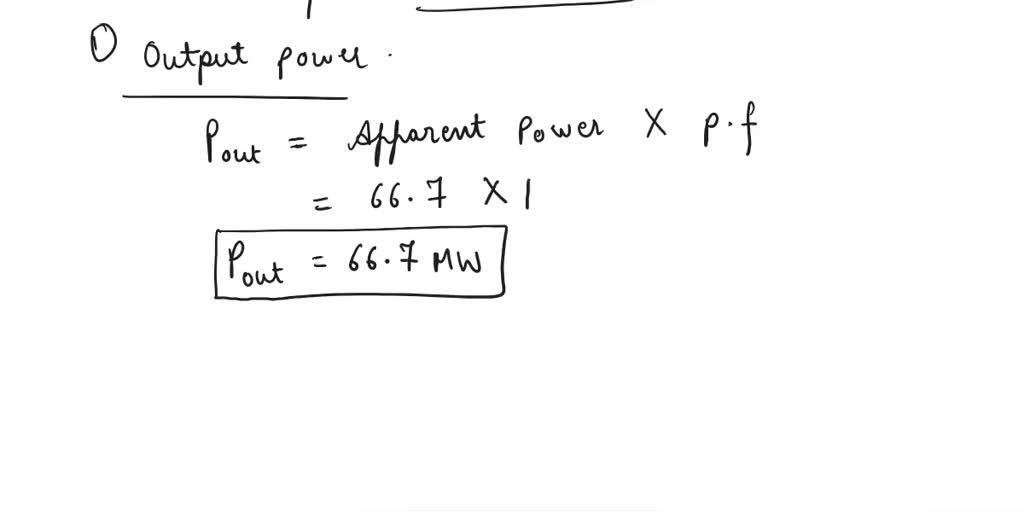 ① Output power.
Pout = Apparent Power X p.f
= 66.7 X 1
Pout = 66.7 MW